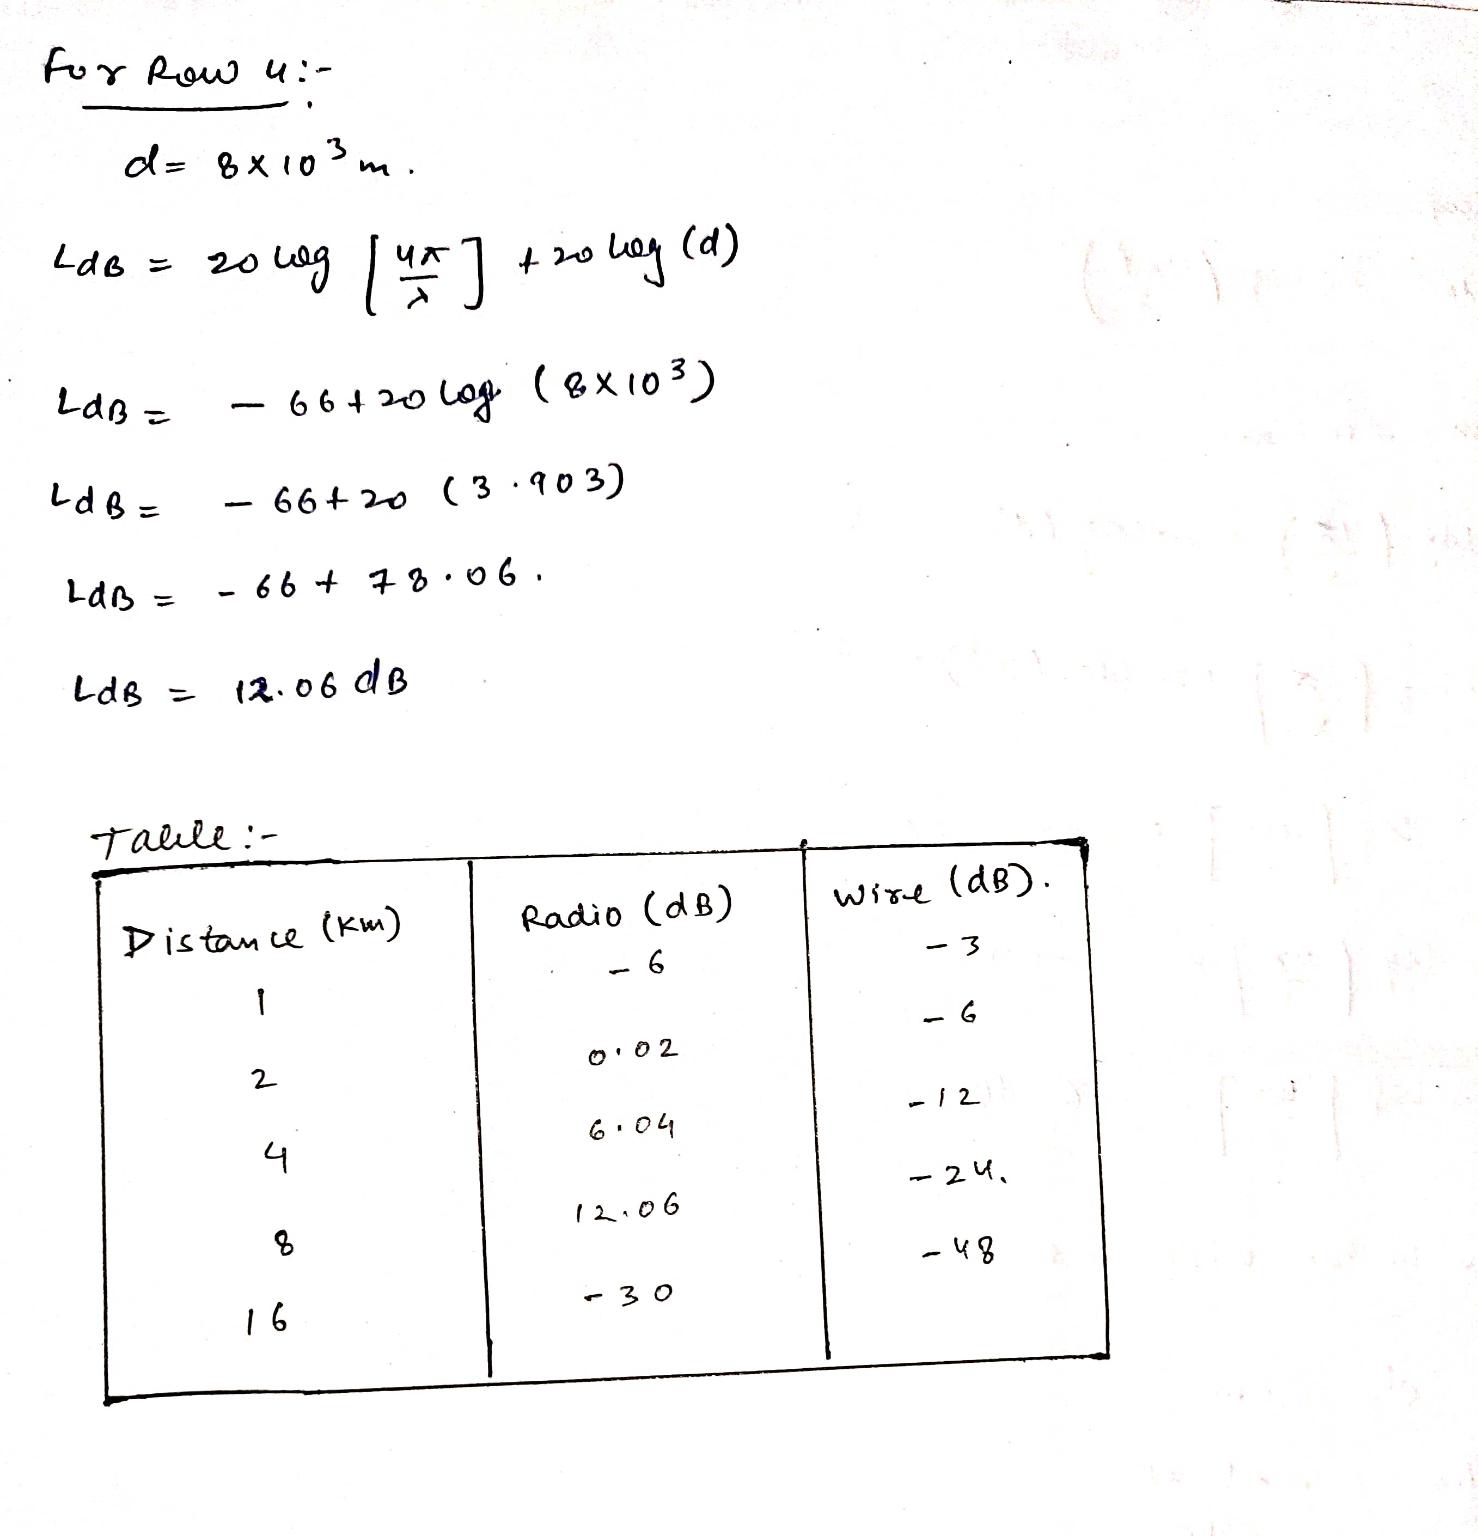 For Row 4:-
d = 8 x 10³ m.
LdB = 20 log [4π/λ] + 20 log (d)
LdB = - 66 + 20 log (8 x 10³)
LdB = - 66 + 20 (3.903)
LdB = - 66 + 78.06.
LdB = 12.06 dB
Table:-
Distance (Km) Radio (dB) Wire (dB).
1 - 6 - 3
2 0.02 - 6
4 6.04 - 12
8 12.06 - 24.
16 - 30 - 48